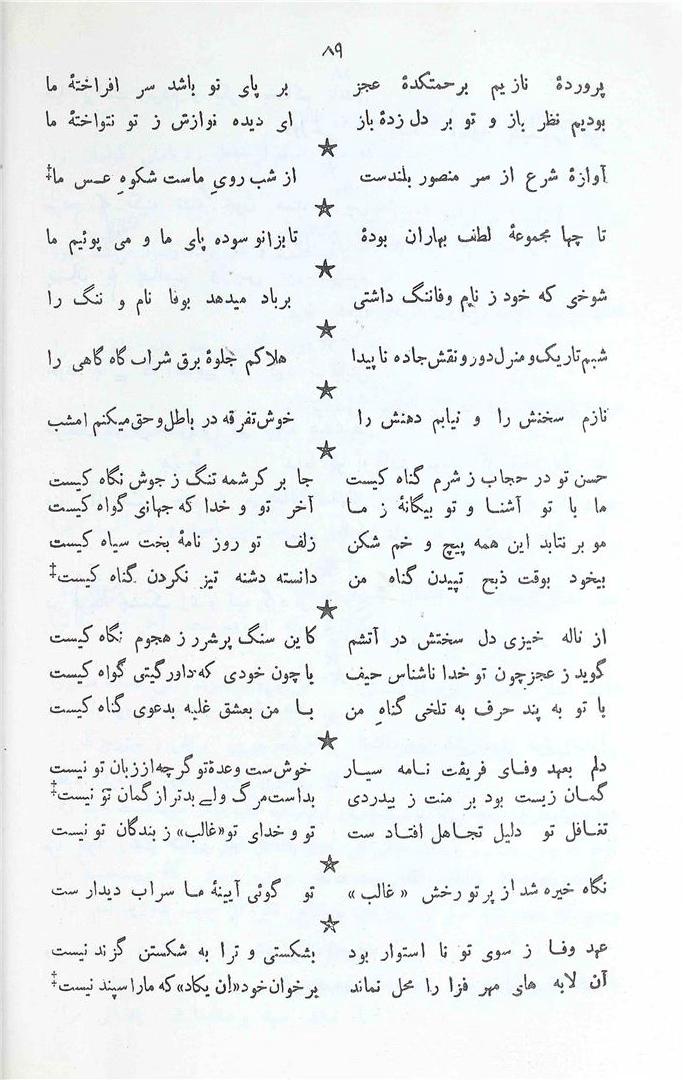 ۸۹
پروردهٔ نازیم برحمتکدهٔ عجز بر پای تو باشد سر افراختهٔ ما
بودیم نظر باز و تو بر دل زدهٔ باز ای دیده نوازش ز تو نتواختهٔ ما
★
آوازهٔ شرع از سر منصور بلندست از شب رویِ ماست شکوهِ عسس ما‡
★
تا چها مجموعهٔ لطف بهاران بودهٔ تا بزانو سوده پای ما و می پوئیم ما
★
شوخی که خود ز نام وفاننگ داشتی برباد میدهد بوفا نام و ننگ را
★
شبم تاریک و منزل دور و نقش جاده ناپیدا هلاکم جلوهٔ برق شراب گاه گاهی را
★
نازم سخنش را و نیابم دهنش را خوش تفرقه در باطل و حق میکنم امشب
★
حسن تو در حجاب ز شرم گناه کیست جا بر کرشمه تنگ ز جوش نگاه کیست
ما با تو آشنا و تو بیگانهٔ ز ما آخر تو و خدا که جهانی گواه کیست
مو بر نتابد این همه پیچ و خم شکن زلف تو روز نامهٔ بخت سیاه کیست
بیخود بوقت ذبح تپیدن گناه من دانسته دشنه تیز نکردن گناه کیست‡
★
از ناله خیزی دل سختش در آتشم کاین سنگ پرشرر ز هجوم نگاه کیست
گوید ز عجز چون تو خدا ناشناس حیف یا چون خودی که داورگیتی گواه کیست
با تو به پند حرف به تلخی گناهِ من با من بعشق غلبه بدعوی گناه کیست
★
دلم بعهد وفای فریفت نامه سیار خوش ست وعدهٔ تو گرچه از زبان تو نیست
گمان زیست بود بر منت ز بیدردی بداست مرگ ولے بدتر از گمان تو نیست‡
تغافل تو دلیل تجاهل افتاد ست تو و خدای تو «غالب» ز بندگان تو نیست
★
نگاه خیره شد از پرتو رخش «غالب» تو گوئی آیینهٔ ما سراب دیدار ست
★
عهد وفا ز سوی تو نا استوار بود بشکستی و ترا به شکستن گزند نیست
آن لابه های مهر فزا را محل نماند برخوان خود «اِن یکاد» که مارا سپند نیست‡